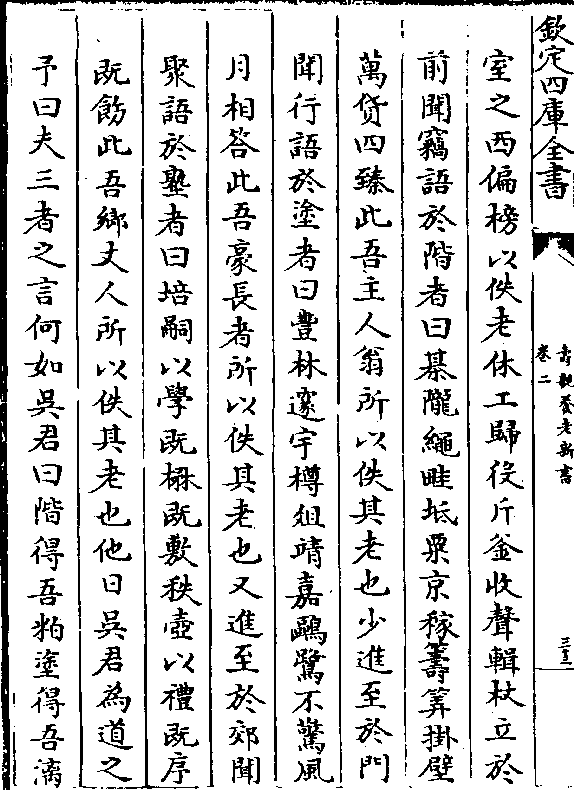 欽定四庫全書
壽親養老新書
卷二
三三
室之西偏榜以佚老休工歸役斤釜收聲輯杖立於
前聞竊語於階者曰棊隴繩畦坻粟京稼籌筭掛壁
萬貨四臻此吾主人翁所以佚其老也少進至於門
聞行語於塗者曰豐林邃宇樽俎靖嘉鷗鷺不驚風
月相答此吾豪長者所以佚其老也又進至於郊聞
聚語於塾者曰培嗣以學既櫾既敷秩壺以禮既序
既飭此吾鄉丈人所以佚其老也他日吳君為道之
予曰夫三者之言何如吳君曰階得吾粕塗得吾漓